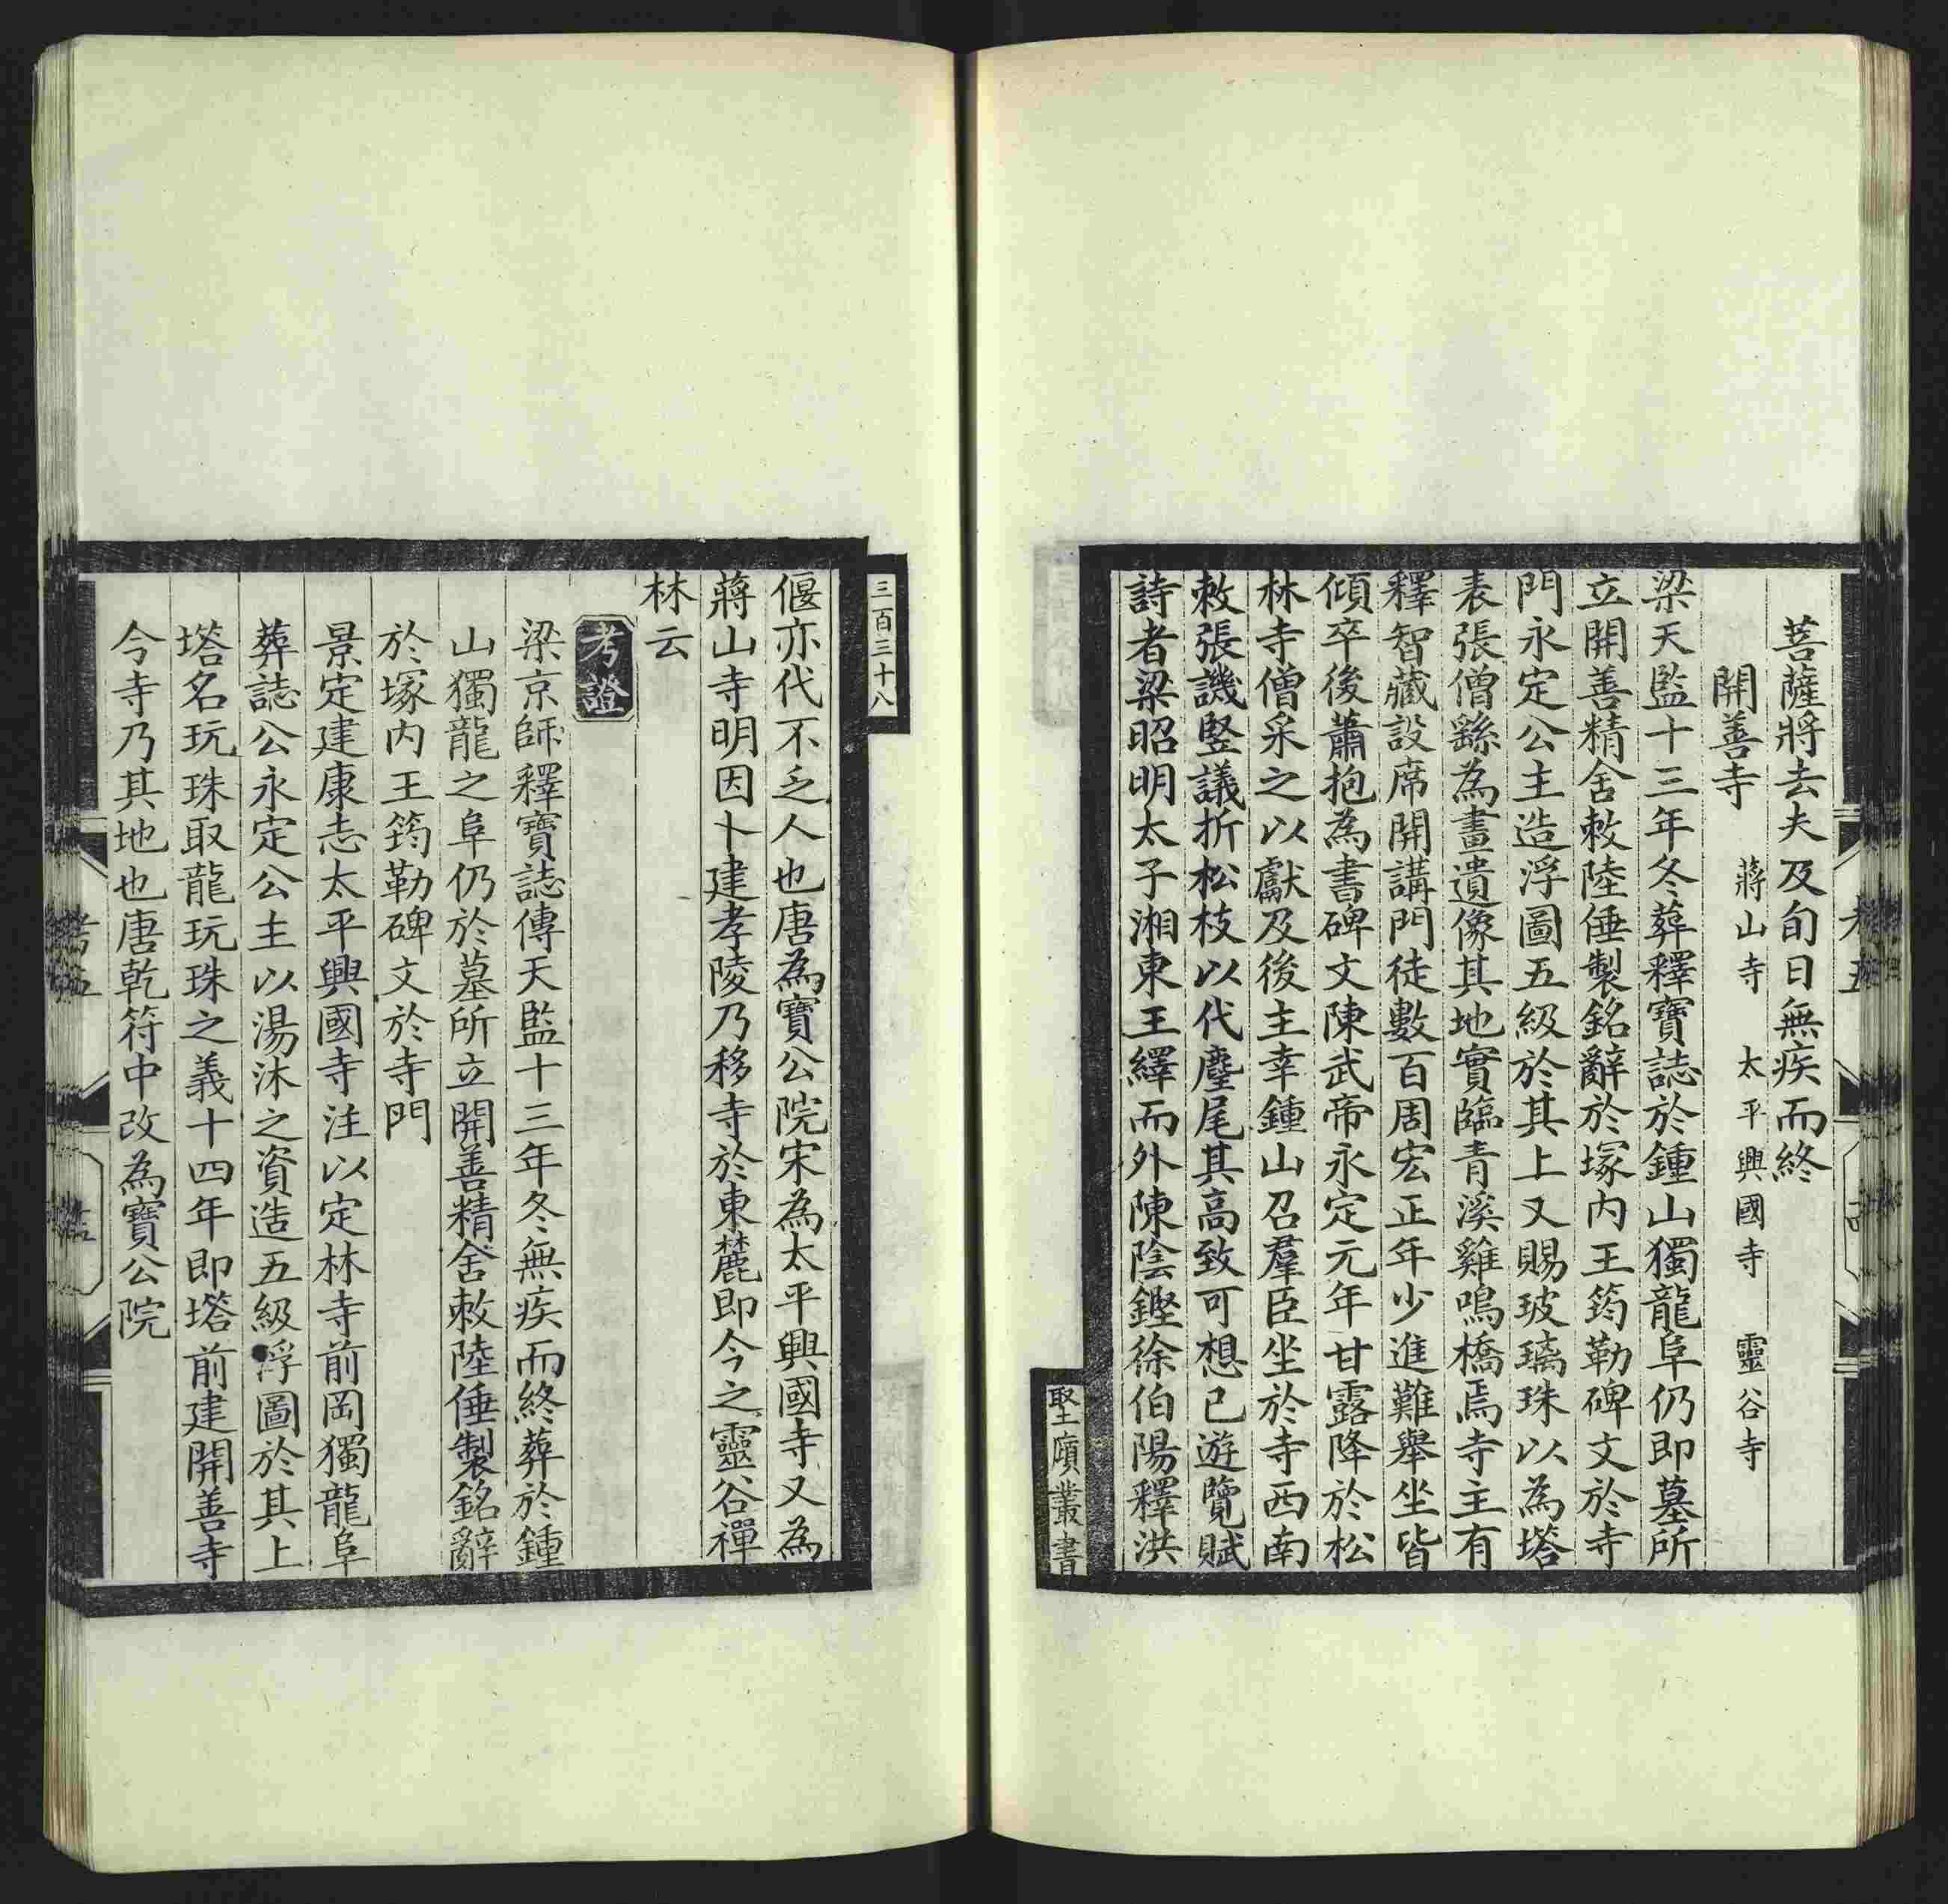 菩薩將去夫及旬日無疾而終
開善寺　蔣山寺　太平興國寺　靈谷寺
梁天監十三年冬葬釋寶誌於鍾山獨龍阜仍即墓所
立開善精舍敕陸倕製銘辭於塚內王筠勒碑文於寺
門永定公主造浮圖五級於其上又賜玻璃珠以為塔
表張僧繇為畫遺像其地實臨青溪雞鳴橋焉寺主有
釋智藏設席開講門徒數百周宏正年少進難舉坐皆
傾卒後蕭抱為書碑文陳武帝永定元年甘露降於松
林寺僧采之以獻及後主幸鍾山召羣臣坐於寺西南
敕張譏竪議折松枝以代麈尾其高致可想已遊覽賦
詩者梁昭明太子湘東王繹而外陳陰鏗徐伯陽釋洪
㙛廎叢書
三百三十八
偃亦代不乏人也唐為寶公院宋為太平興國寺又為
蔣山寺明因卜建孝陵乃移寺於東麓即今之靈谷禪
林云
考證
梁京師釋寶誌傳天監十三年冬無疾而終葬於鍾
山獨龍之阜仍於墓所立開善精舍敕陸倕製銘辭
於塚內王筠勒碑文於寺門
景定建康志太平興國寺注以定林寺前岡獨龍阜
葬誌公永定公主以湯沐之資造五級浮圖於其上
塔名玩珠取龍玩珠之義十四年即塔前建開善寺
今寺乃其地也唐乾符中改為寶公院